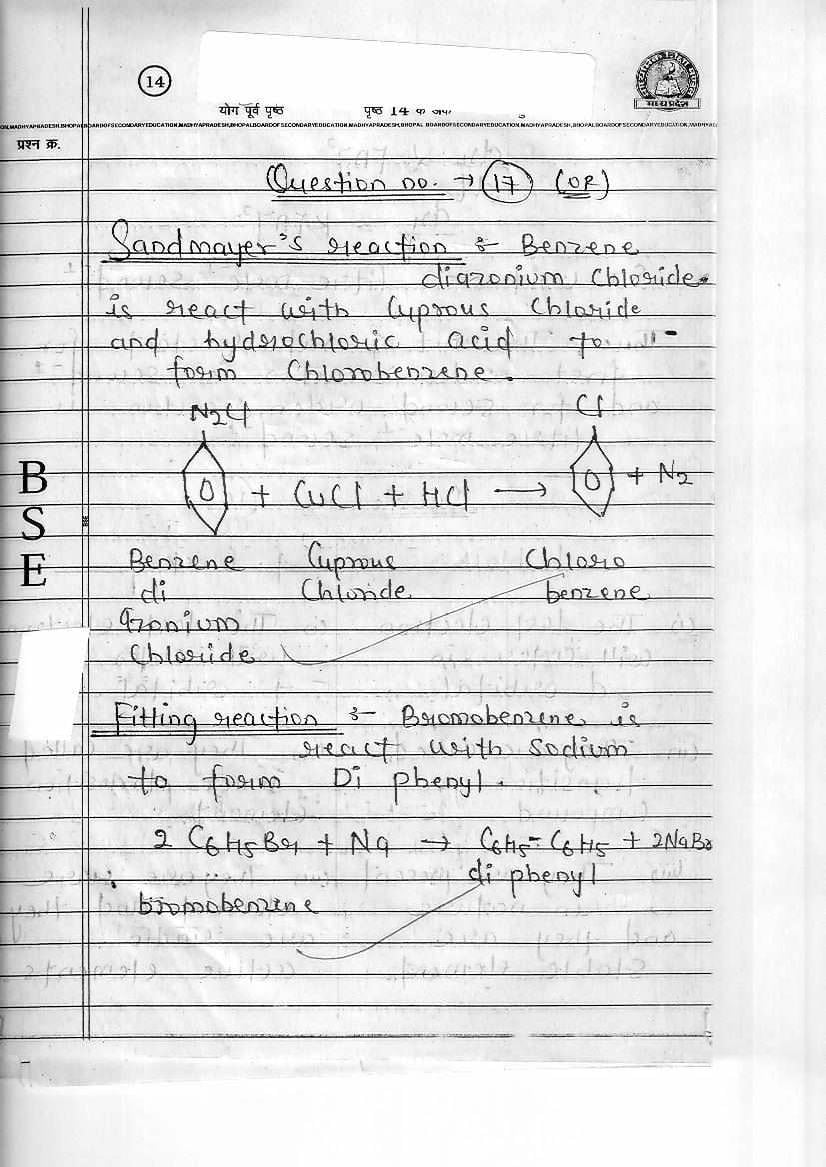 14
योग पूर्व पृष्ठ पृष्ठ 14 क
मध्यप्रदेश
BOARD OF SECONDARY EDUCATION, MADHYA PRADESH, BHOPAL BOARD OF SECONDARY EDUCATION, MADHYA PRADESH, BHOPAL BOARD OF SECONDARY EDUCATION, MADHYA PRADESH, BHOPAL
प्रश्न क्र.
Question no. → 17 (OR)
Sandmayer's reaction :- Benzene
diazonium Chloride
is react with Cuprous Chloride
and hydrochloric acid to
form Chlorobenzene.
N2Cl Cl
+ CuCl + HCl → + N2
Benzene Cuprous Chloro
di Chloride benzene
azonium
Chloride
B
S
E
Fitting reaction :- Bromobenzene is
react with Sodium
to form Di phenyl.
2 C6H5Br + Na → C6H5-C6H5 + 2NaBr
di phenyl
bromobenzene